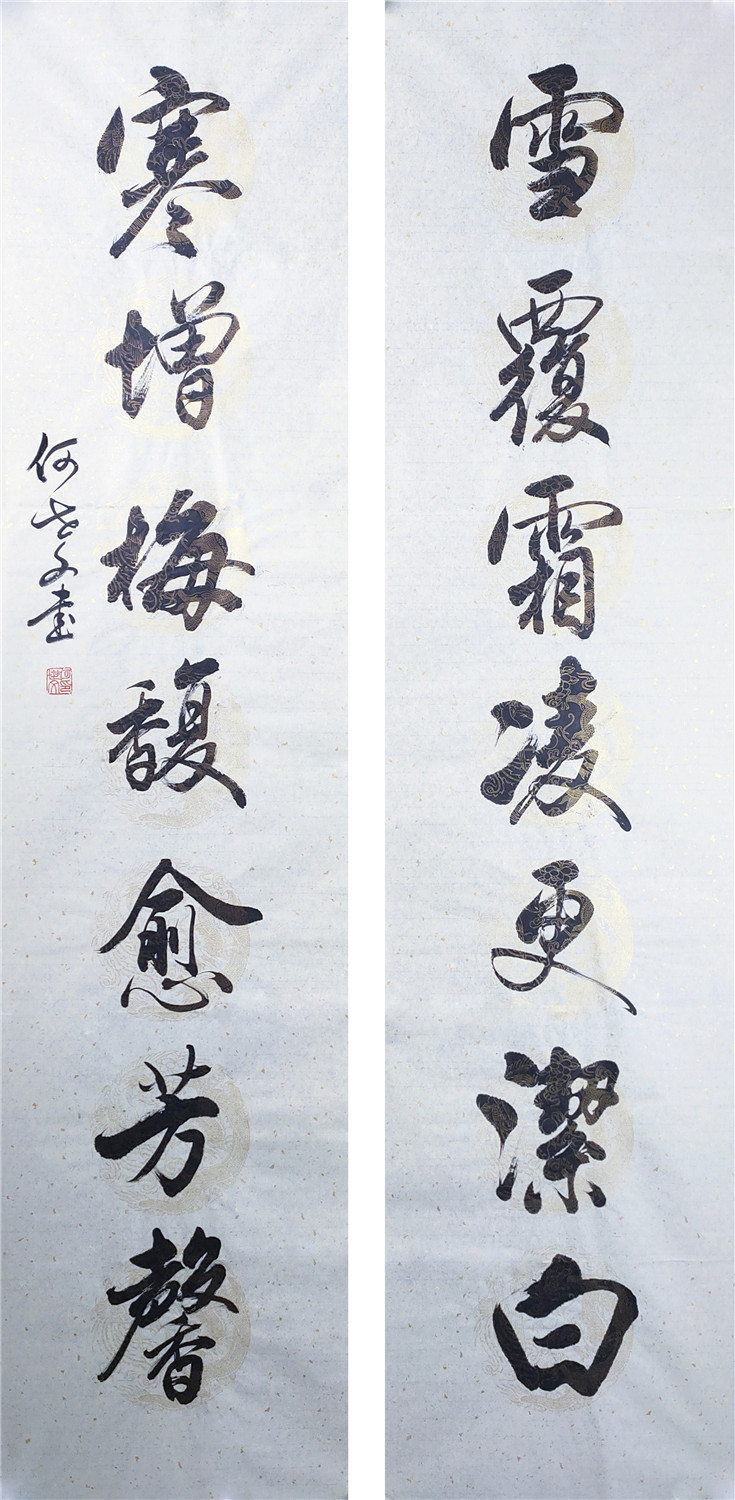 雪覆霜凌更潔白
寒增梅馥愈芳馨
何世文書